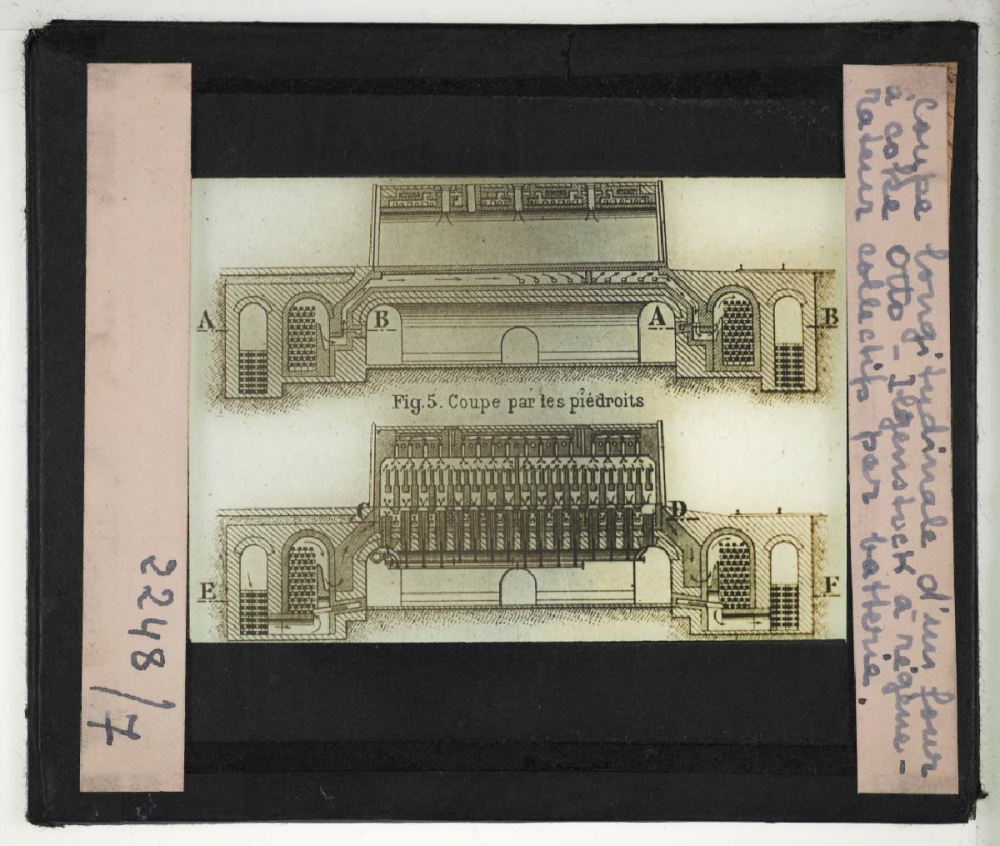 2248/7
A
B
A
B
Fig.5. Coupe par les piédroits
C
D
E
F
Coupe longitudinale d'un four
à coke Otto - Ilgenstock à régéné-
rateur collectifs par batterie.